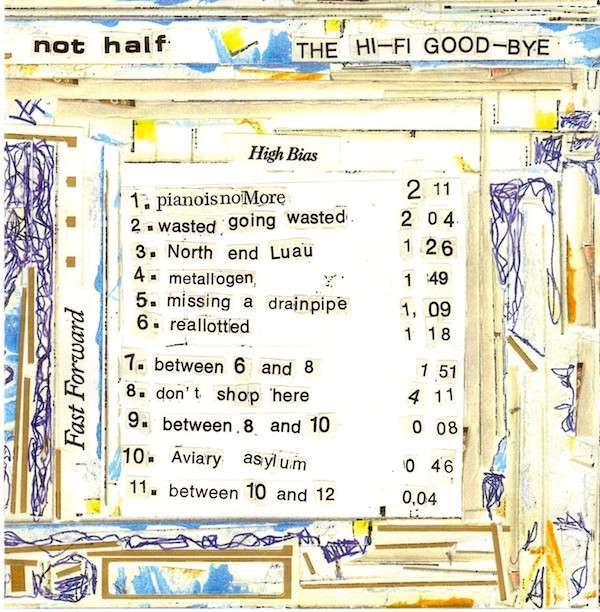 not half THE HI-FI GOOD-BYE
High Bias
1. pianoisnoMore 2 11
2. wasted going wasted 2 04
3. North end Luau 1 26
4. metallogen 1 49
5. missing a drainpipe 1, 09
6. reallotted 1 18
7. between 6 and 8 1 51
8. don't shop here 4 11
9. between 8 and 10 0 08
10. Aviary asylum 0 46
11. between 10 and 12 0,04
Fast Forward